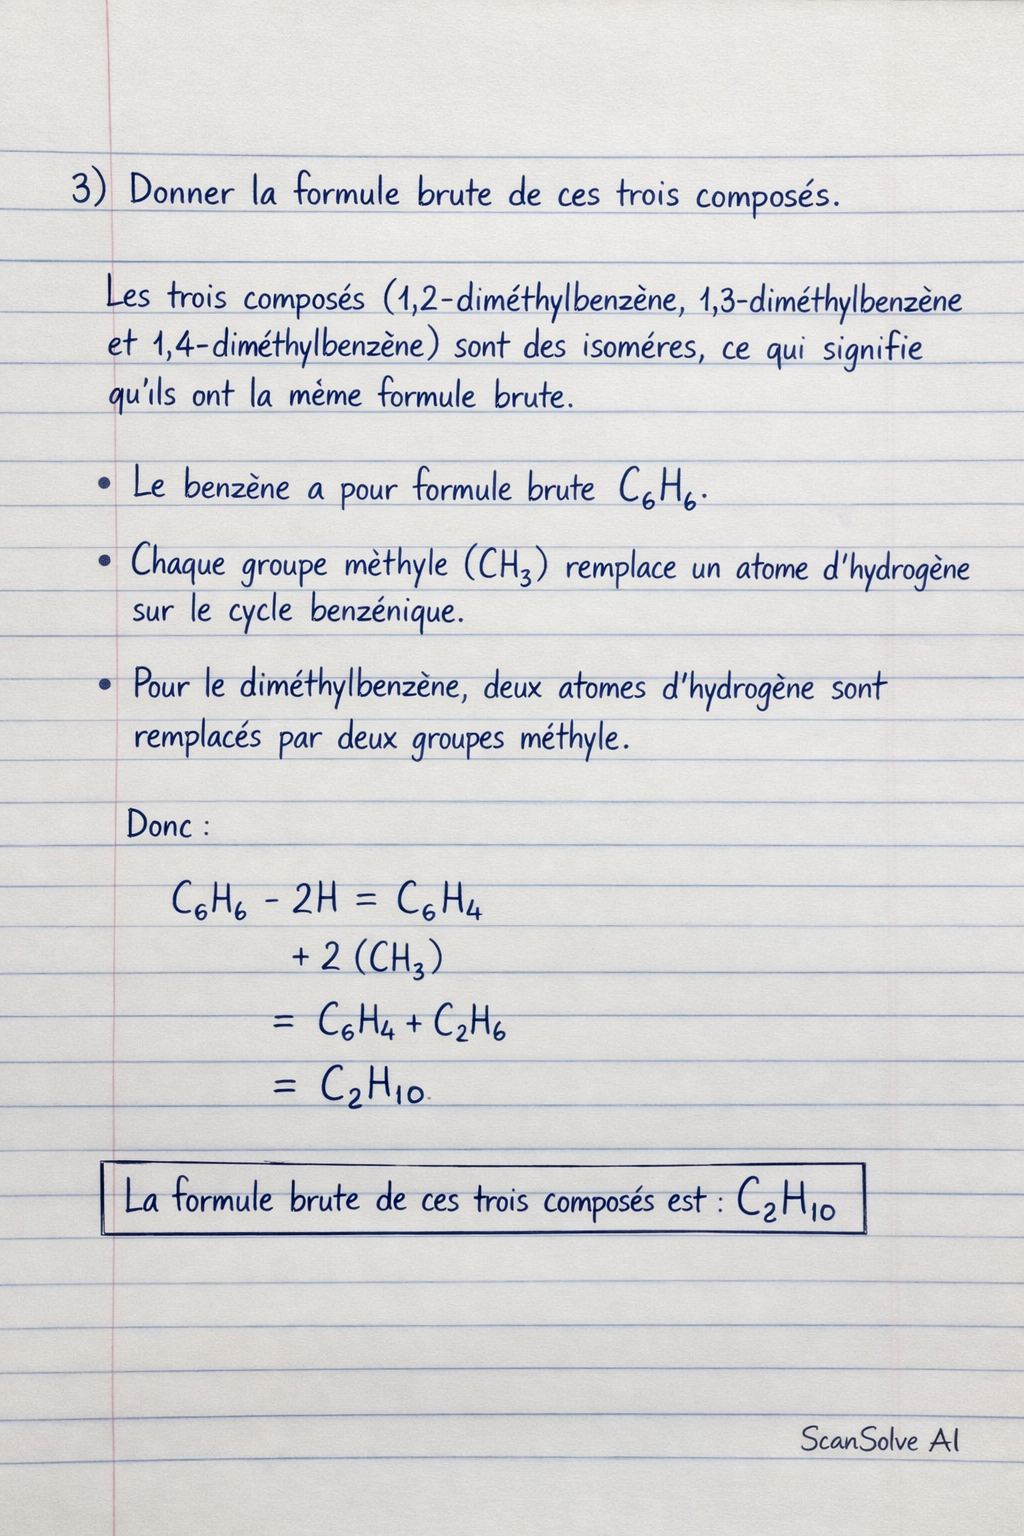 3) Donner la formule brute de ces trois composés.
Les trois composés (1,2-diméthylbenzène, 1,3-diméthylbenzène
et 1,4-diméthylbenzène) sont des isoméres, ce qui signifie
qu'ils ont la mème formule brute.
• Le benzène a pour formule brute C₆H₆.
• Chaque groupe mèthyle (CH₃) remplace un atome d'hydrogène
sur le cycle benzénique.
• Pour le diméthylbenzène, deux atomes d'hydrogène sont
remplacés par deux groupes méthyle.
Donc :
C₆H₆ - 2H = C₆H₄
+ 2 (CH₃)
= C₆H₄ + C₂H₆
= C₂H₁₀.
La formule brute de ces trois composés est : C₂H₁₀
ScanSolve AI